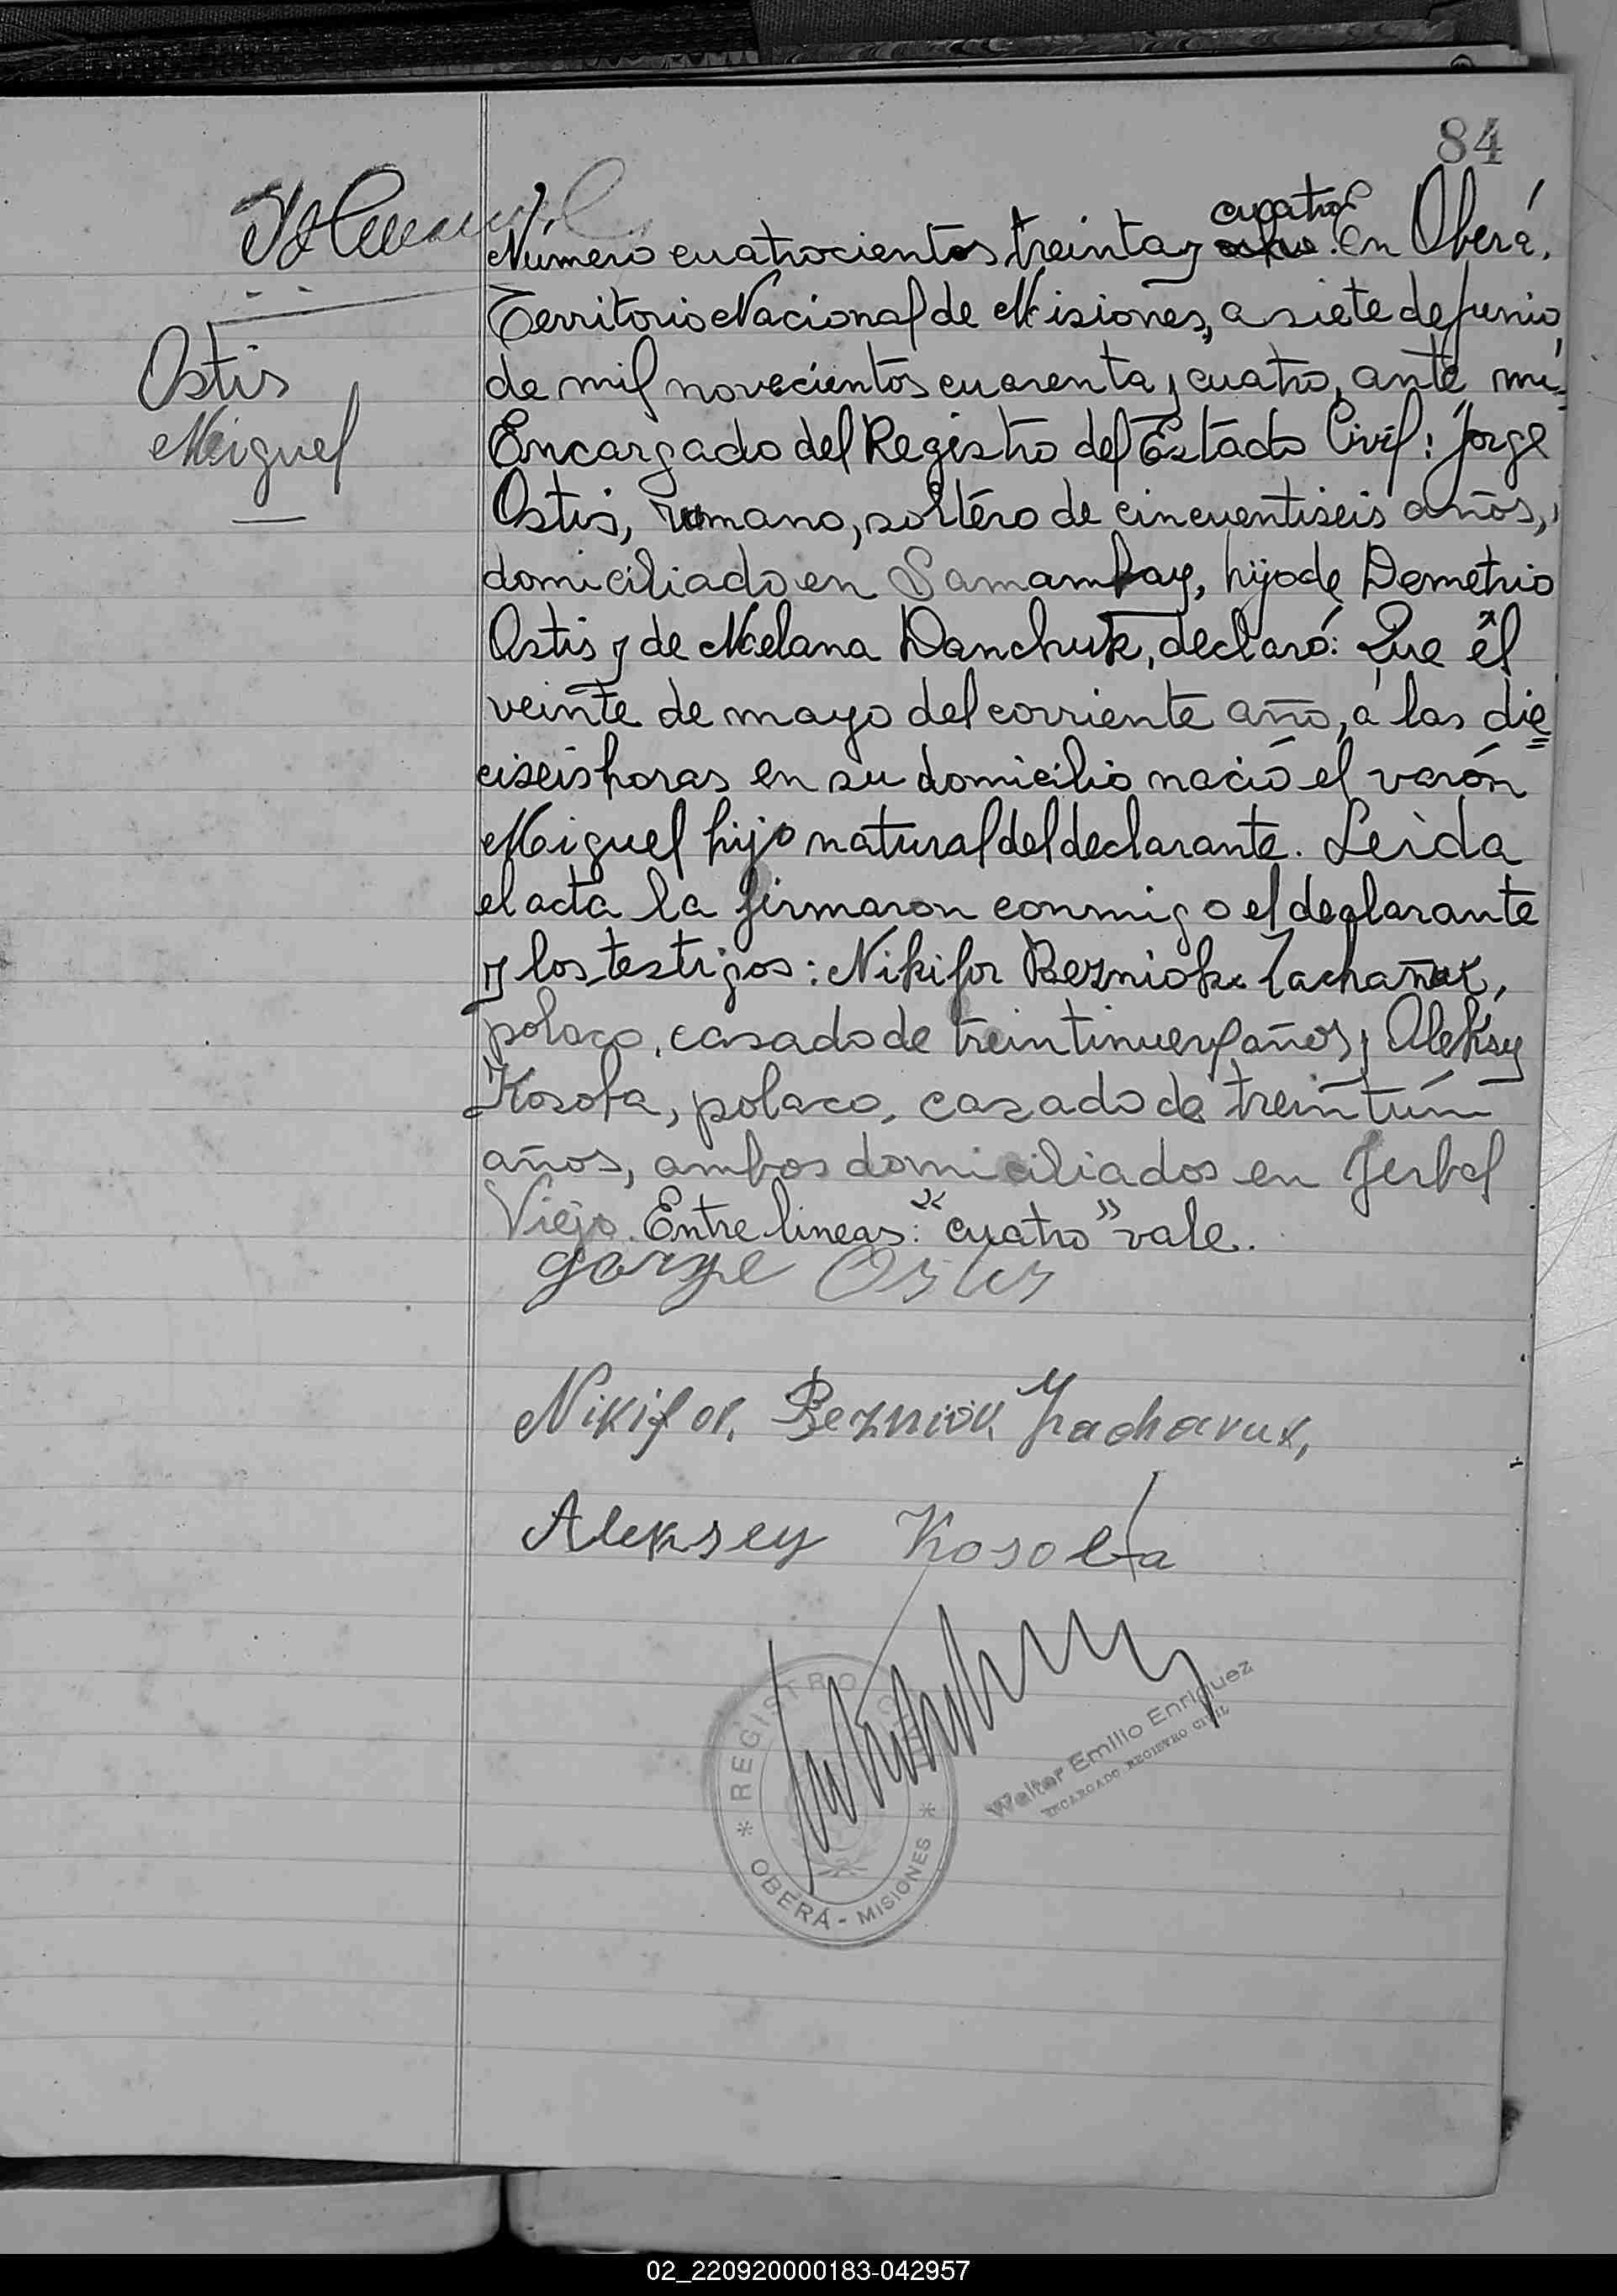 84
cuatro
Número cuatrocientos treinta y ocho. En Oberá,
Territorio Nacional de Misiones, a siete de junio
de mil novecientos cuarenta y cuatro, ante mí
Ostis
Miguel
Encargado del Registro del Estado Civil: Jorge
Ostis, rumano, soltero de cincuentiseis años,
domiciliado en Samambay, hijo de Demetrio
Ostis y de Melana Danchuk, declaró: Que el
veinte de mayo del corriente año, a las die
ciseis horas en su domicilio nació el varón
Miguel hijo natural del declarante. Leida
el acta la firmaron conmigo el declarante
y los testigos: Nikifor Bezniok Zachañuk,
polaco, casado de treintinueve años y Aleksy
Kosota, polaco, casado de treintún
años, ambos domiciliados en Yerbal
Viejo. Entre lineas: "cuatro" vale.
Gorge Ostis
Nikifor. Bezniok Zachavuk,
Aleksey Kosoła
REGISTRO CIVIL
* OBERÁ - MISIONES *
Walter Emilio Enriquez
ENCARGADO REGISTRO CIVIL
02_220920000183-042957